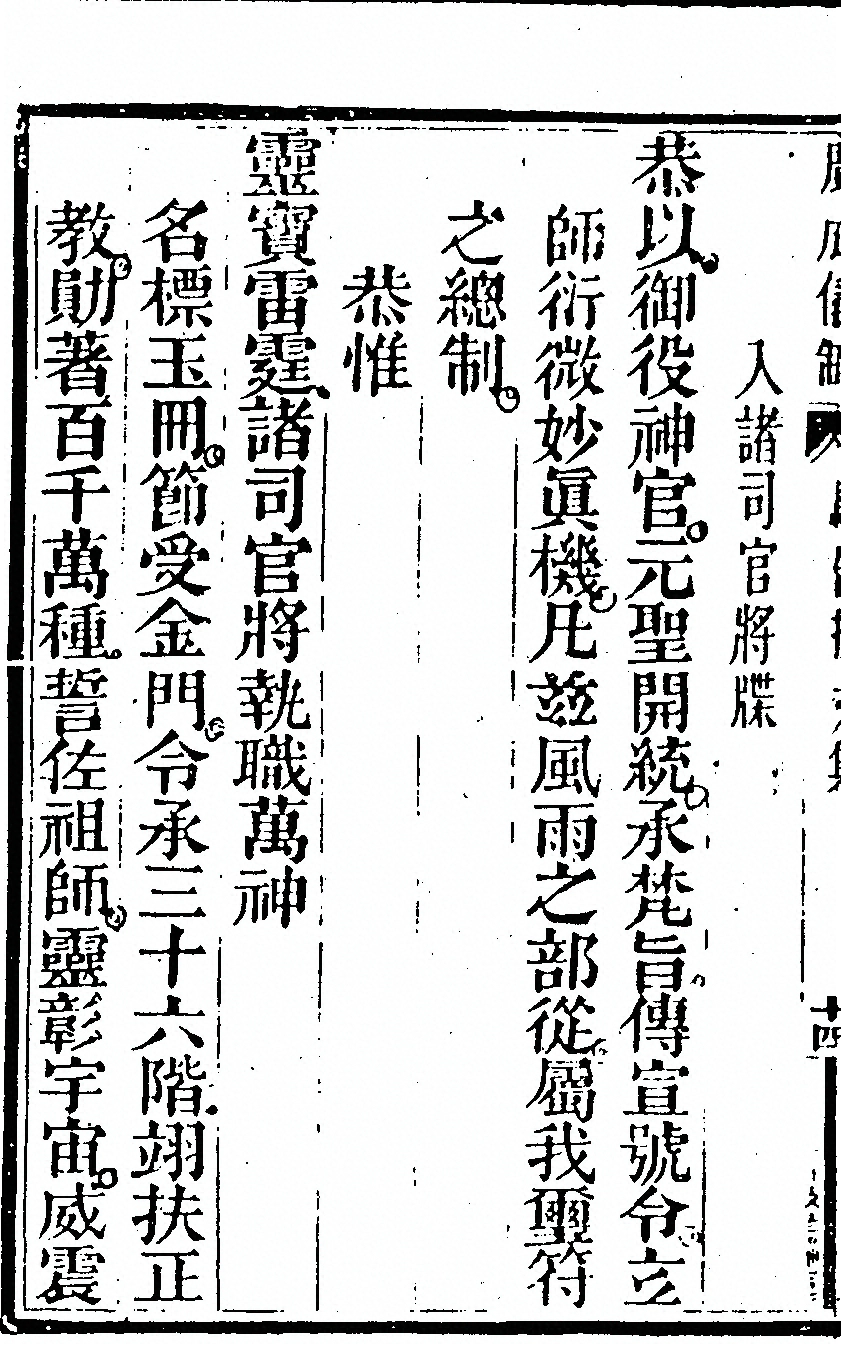 入諸司官將牒
恭以御役神官元聖開統承梵旨傳宣號令立
師衍微妙眞機凡茲風雨之部從屬我璽符
之總制
恭惟
靈寶雷霆諸司官將執職萬神
名標玉冊節受金門令承三十六階翊扶正
教勛著百千萬種誓佐祖師靈彰宇宙威震
十四